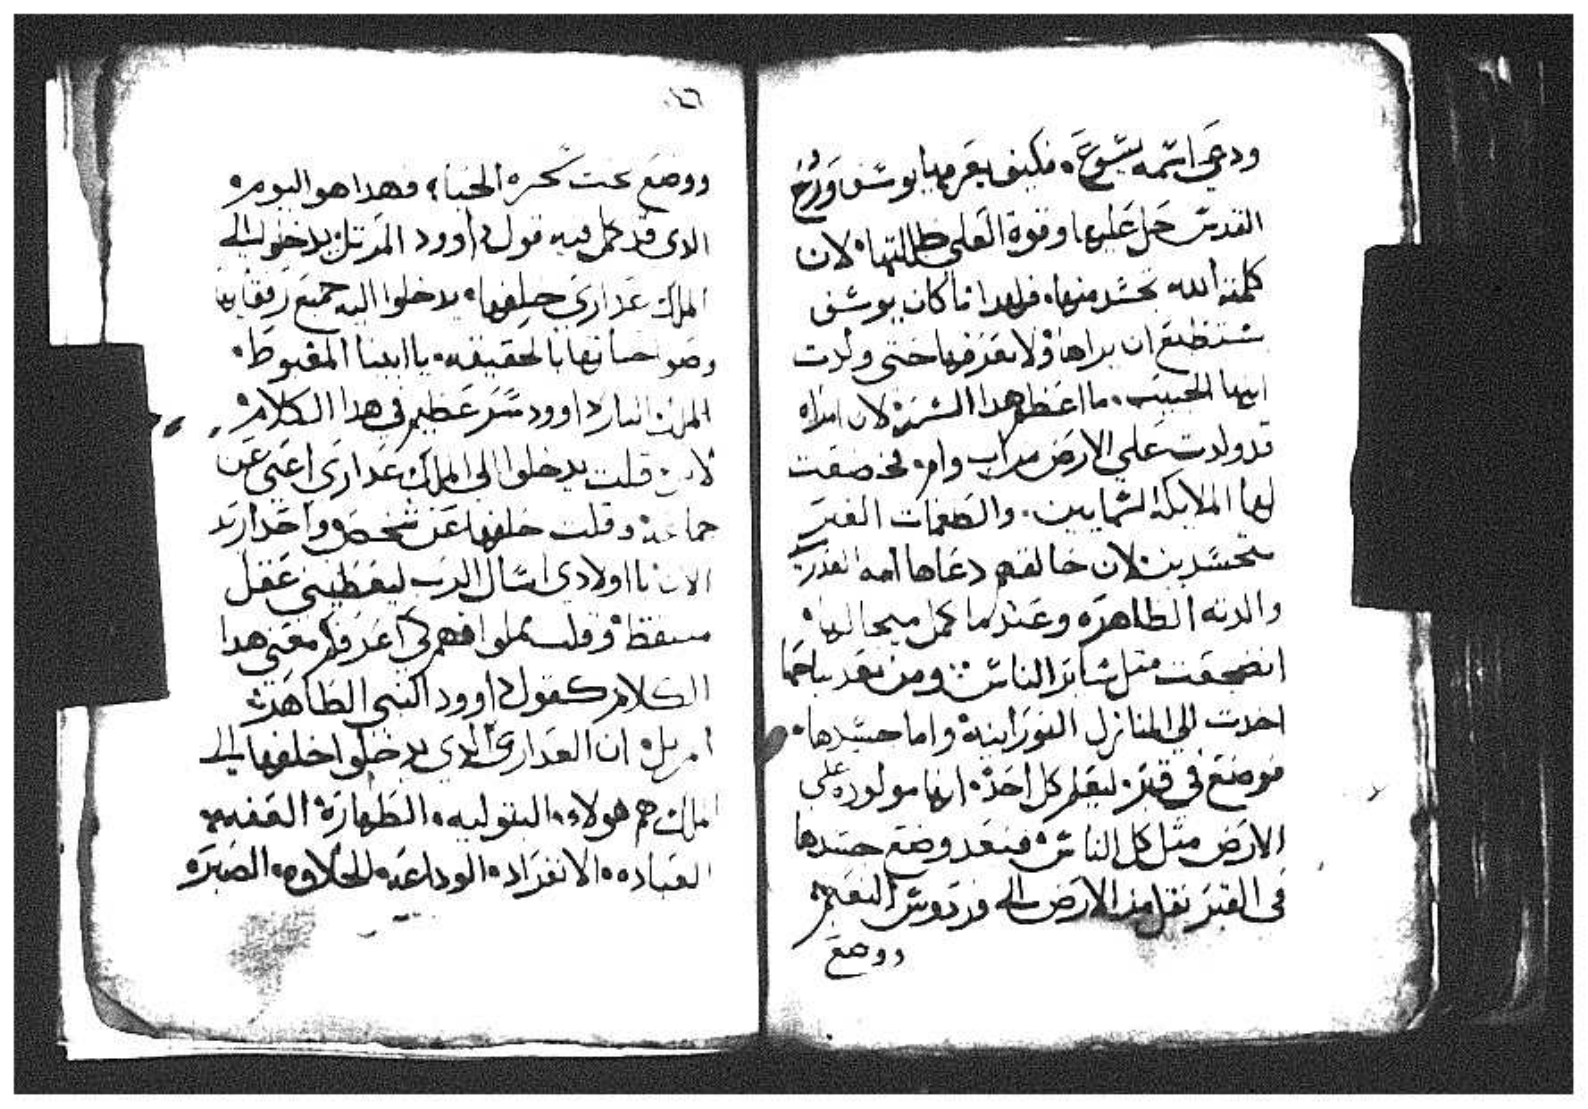 ودعي اسمه يسوع • فكيف يقربها يوسف وروح
القدس حل عليها وقوة العلي ظللتها • لان
كلمة الله تجسد منها • فلهدا ما كان يوسف
يستطيع ان يراها ولا يعرفها حتي ولدت
ابنها الحبيب • ما اعظم هدا السر لان امراه
قد ولدت علي الارض من اب وام • تخضعت
لها الملايكة السمايين • والطغمات الغير
متجسدين لان خالقهم دعاها امه
والدته الطاهره وعندما كمل ميجالها •
انضجعت مثل ساير الناس ومن بعد نياحها
اخدت الي المنازل النورانية واما جسدها •
فوضع في قبر • ليعلم كل احد • انها مولوده علي
الارض مثل كل الناس فبعد وضع جسدها
في القبر نقل من الارض الي فردوس النعيم
ووضع
١٦
ووضع تحت شجرة الحياه • فهدا هو اليوم
الدي قد كمل فيه قول داوود المرتل يدخلوا الي
الملك عداري خلفها • يدخلوا اليه جميع رفقايها
بالحقيقه • يا ابينا المغبوط •
الملك البار داوود سر عظيم في هدا الكلام
قلت يدخلوا الي الملك عداري اعني عن
جماعة وقلت خلفها عن شخص واحد اريد
الان يا اولادي اسال الرب ليعطيني عقل
افهم لكي اعرفكم معني هدا
الكلام كقول داوود النبي الطاهر
ان العداري الدي يدخلوا خلفها الي
الملك هم هولاء • البتوليه • الطهارة العفه •
العباده • الانفراد • الوداعه • الحلاوه • الصبر •